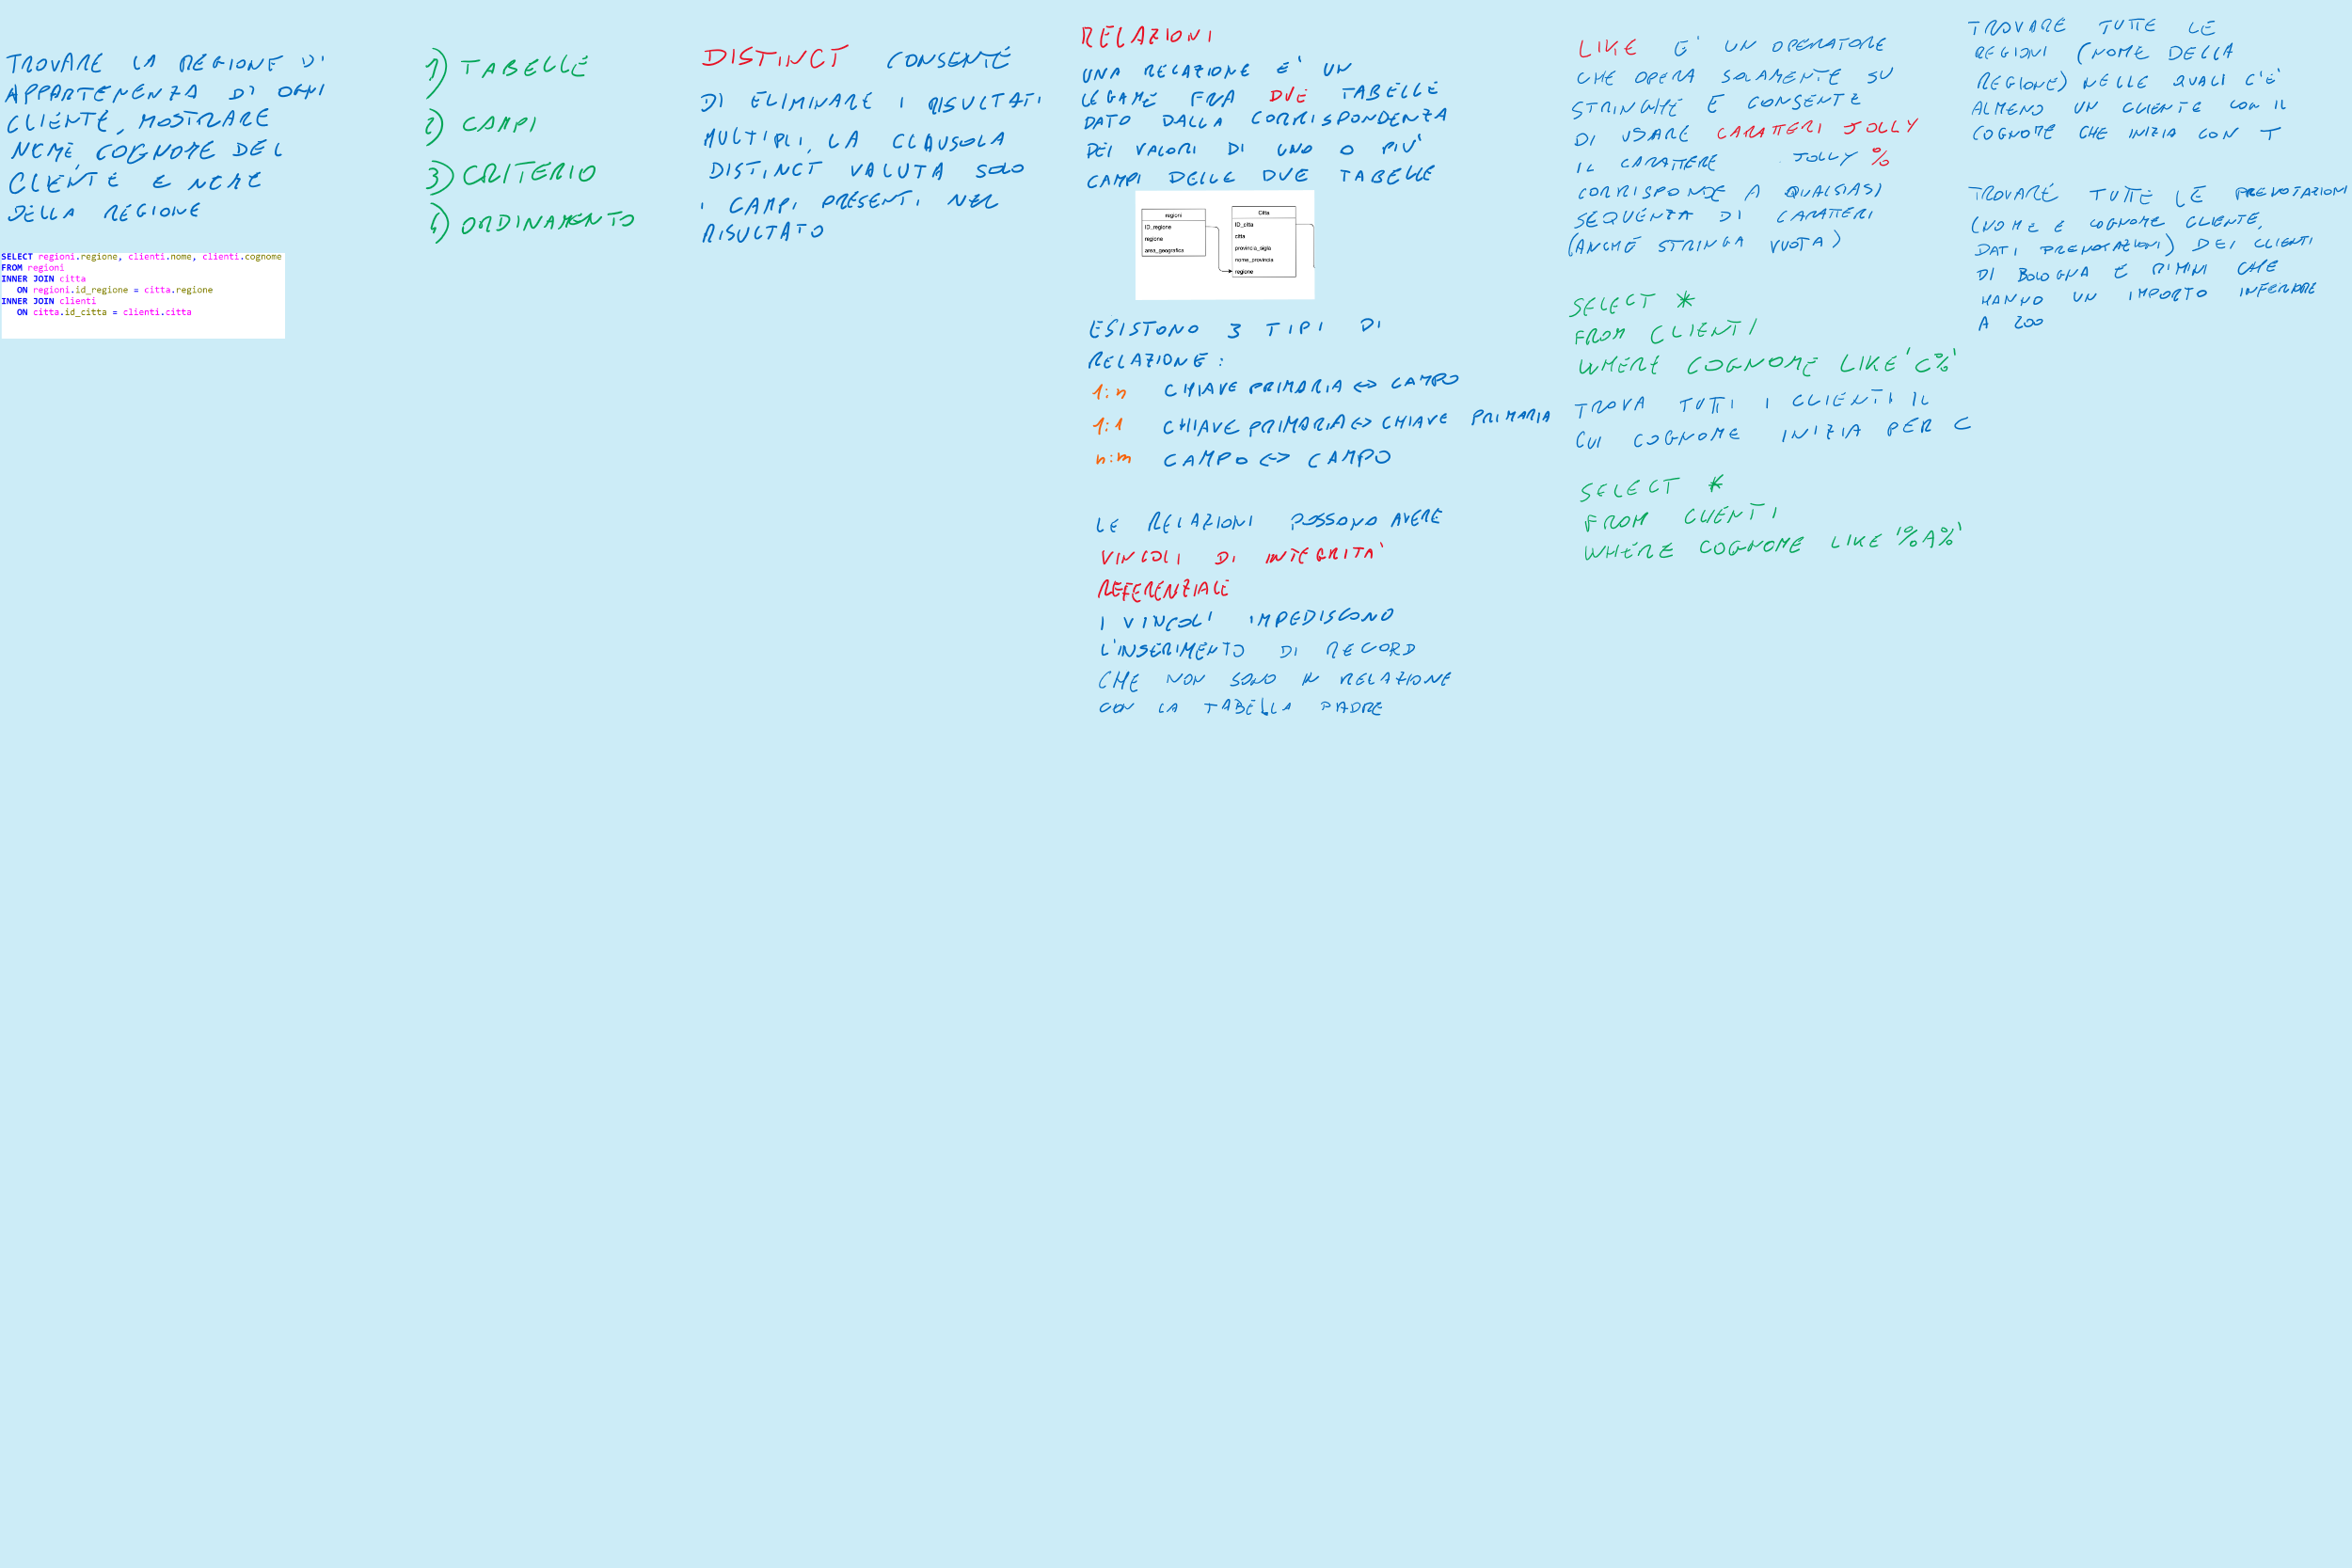 TROVARE LA REGIONE DI
APPARTENENZA DI OGNI
CLIENTE, MOSTRARE
NOME, COGNOME DEL
CLIENTE E NOME
DELLA REGIONE
SELECT regioni.regione, clienti.nome, clienti.cognome
FROM regioni
INNER JOIN citta
ON regioni.id_regione = citta.regione
INNER JOIN clienti
ON citta.id_citta = clienti.citta
1) TABELLE
2) CAMPI
3) CRITERIO
4) ORDINAMENTO
DISTINCT CONSENTE
DI ELIMINARE I RISULTATI
MULTIPLI, LA CLAUSOLA
DISTINCT VALUTA SOLO
I CAMPI PRESENTI NEL
RISULTATO
RELAZIONI
UNA RELAZIONE E' UN
LEGAME FRA DUE TABELLE
DATO DALLA CORRISPONDENZA
DEI VALORI DI UNO O PIU'
CAMPI DELLE DUE TABELLE
regioni
ID_regione
regione
area_geografica
Citta
ID_citta
citta
provincia_sigla
nome_provincia
regione
ESISTONO 3 TIPI DI
RELAZIONE:
1:n CHIAVE PRIMARIA <-> CAMPO
1:1 CHIAVE PRIMARIA <-> CHIAVE PRIMARIA
n:m CAMPO <-> CAMPO
LE RELAZIONI POSSONO AVERE
VINCOLI DI INTEGRITA'
REFERENZIALE
I VINCOLI IMPEDISCONO
L'INSERIMENTO DI RECORD
CHE NON SONO IN RELAZIONE
CON LA TABELLA PADRE
LIKE E' UN OPERATORE
CHE OPERA SOLAMENTE SU
STRINGHE E CONSENTE
DI USARE CARATTERI JOLLY
IL CARATTERE JOLLY %
CORRISPONDE A QUALSIASI
SEQUENZA DI CARATTERI
(ANCHE STRINGA VUOTA)
SELECT *
FROM CLIENTI
WHERE COGNOME LIKE 'C%'
TROVA TUTTI I CLIENTI IL
CUI COGNOME INIZIA PER C
SELECT *
FROM CLIENTI
WHERE COGNOME LIKE '%A%'
TROVARE TUTTE LE
REGIONI (NOME DELLA
REGIONE) NELLE QUALI C'E'
ALMENO UN CLIENTE CON IL
COGNOME CHE INIZIA CON T
TROVARE TUTTE LE PRENOTAZIONI
(NOME E COGNOME CLIENTE,
DATI PRENOTAZIONI) DEI CLIENTI
DI BOLOGNA E RIMINI CHE
HANNO UN IMPORTO INFERIORE
A 200